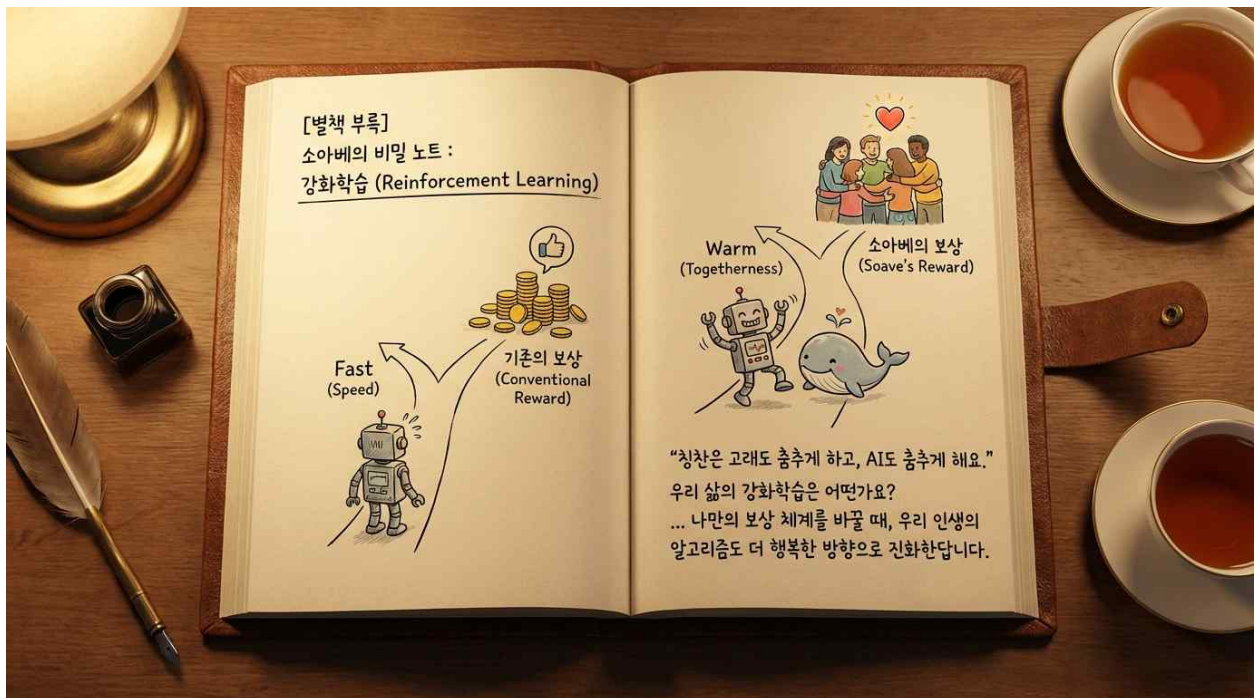 [별책 부록]
소아베의 비밀 노트 :
강화학습 (Reinforcement Learning)
Fast
(Speed)
기존의 보상
(Conventional
Reward)
Warm
(Togetherness)
소아베의 보상
(Soave's Reward)
“칭찬은 고래도 춤추게 하고, AI도 춤추게 해요.”
우리 삶의 강화학습은 어떤가요?
... 나만의 보상 체계를 바꿀 때, 우리 인생의
알고리즘도 더 행복한 방향으로 진화한답니다.